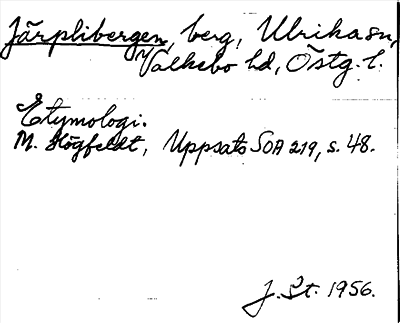 Järplibergen, berg, Ulrika sn,
Valkebo hd, Östg. l.
Etymologi.
M. Högfeldt, Uppsats SOA 219, s. 48.
J. St. 1956.